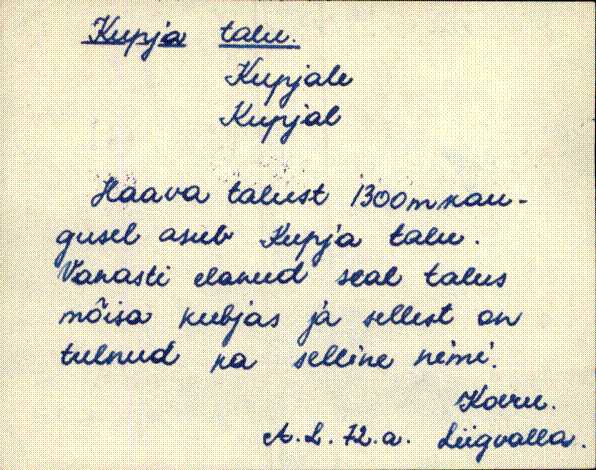 Kupja talu.
Kupjale
Kupjal
Haava talust 1300 m kau-
gusel asub Kupja talu.
Vanasti elanud seal talus
mõisa kubjas ja sellest on
tulnud ka selline nimi.
Koeru.
A. L. 72. a. Liigvalla.